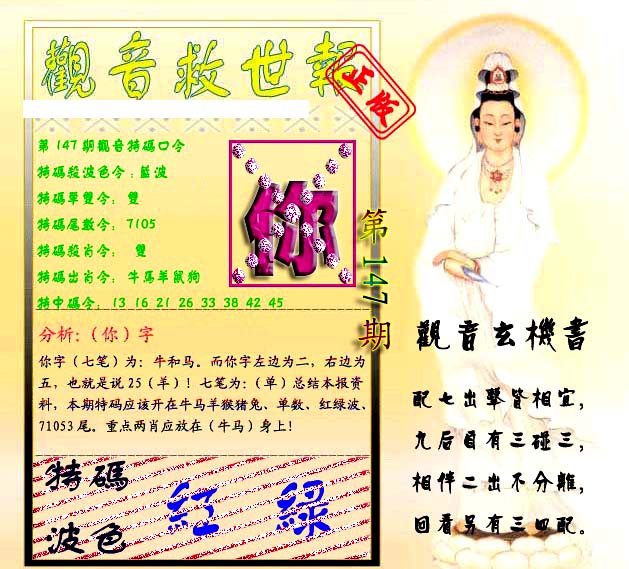 觀音救世報
正版
第147期觀音特碼口令
特碼殺波色令：藍波
特碼單雙令： 雙
特碼尾數令： 7105
特碼殺肖令： 雙
特碼出肖令： 牛馬羊鼠狗
特中碼令： 13 16 21 26 33 38 42 45
你
第147期
分析:（你）字
你字（七笔）为：牛和马。而你字左边为二，右边为
五，也就是说25（羊）！七笔为：（单）总结本报资
料，本期特码应该开在牛马羊猴猪兔、单数、红绿波、
71053尾。重点两肖应放在（牛马）身上！
特碼
波色
紅 綠
觀音玄機書
配七出擊皆相宜，
九后目有三碰三，
相伴二出不分離，
回看另有三四配。